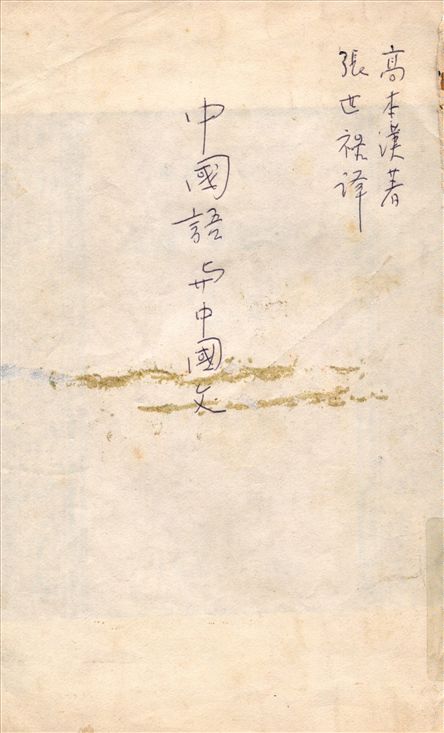 高本漢著
張世祿译
中國語与中國文